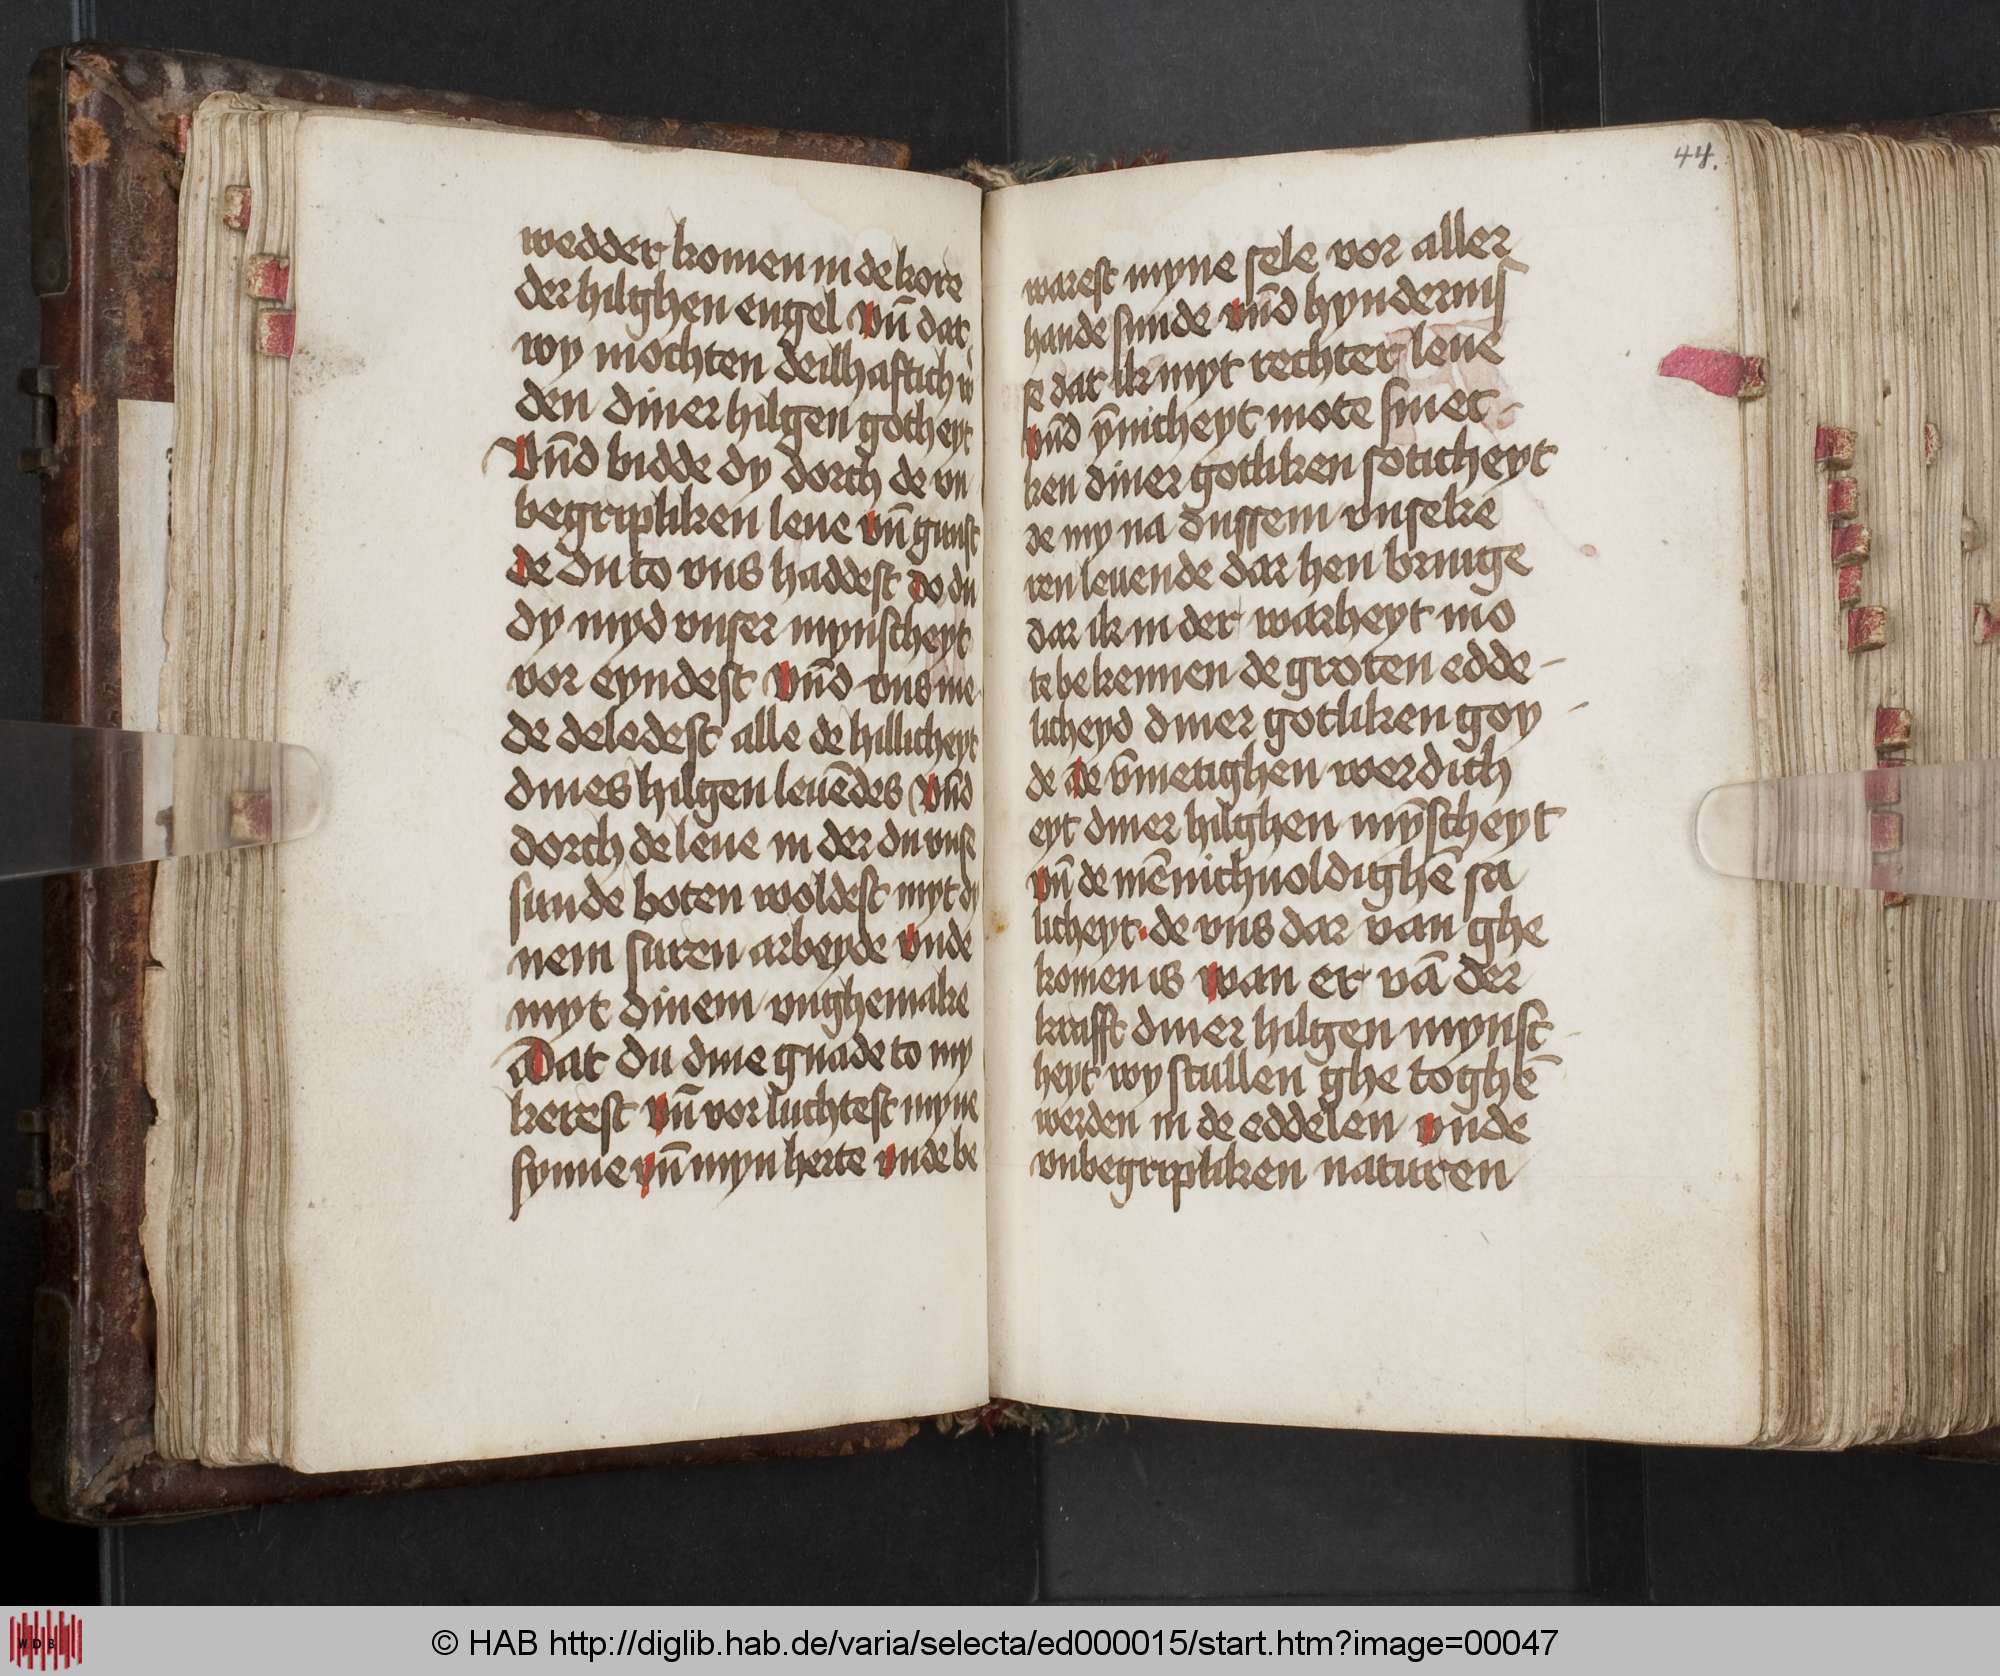 wedder komen in de kore
der hilghen engel vn̄ dat
wy mochten deilhaftich w
den diner hilgen gotheyt
Vn̄d bidde dy dorch de vn
begripliken leue vn̄ gunst
de du to vns haddest do du
dy myd vnser mynscheyt
vor eyndest Vn̄d vns me
de deledest alle de hillicheyt
dines hilgen leuēdes Vn̄d
dorch de leue in der du vnse
sunde boten woldest myt dy
nem suren arbeyde vnde
myt dinem vnghemake
Dat du dine gnade to my
kerest vn̄ vorluchtest myne
synne vn̄ myn herte vnde be
44.
warest myne sele vor aller
hande sunde vn̄d hyndernis
se dat ik myt rechter leue
vn̄d ȳnicheyt mote smec
ken diner gotliken soticheyt
de my na dussem vnseke
ren leuende dar hen bringe
dar ik in der warheyt mo
te bekennen de groten edde-
licheyd diner gotliken goy-
de de v̄metighen werdich
eyt diner hilghen mȳscheyt
vn̄ de mēnichuoldighē sa
licheyt · de vns dar van ghe
komen is wan er vā der
krafft diner hilgen mynsc
heyt wy scullen ghe toghē
werden in de eddelen vnde
vnbegripliken naturen
© HAB http://diglib.hab.de/varia/selecta/ed000015/start.htm?image=00047
WDB